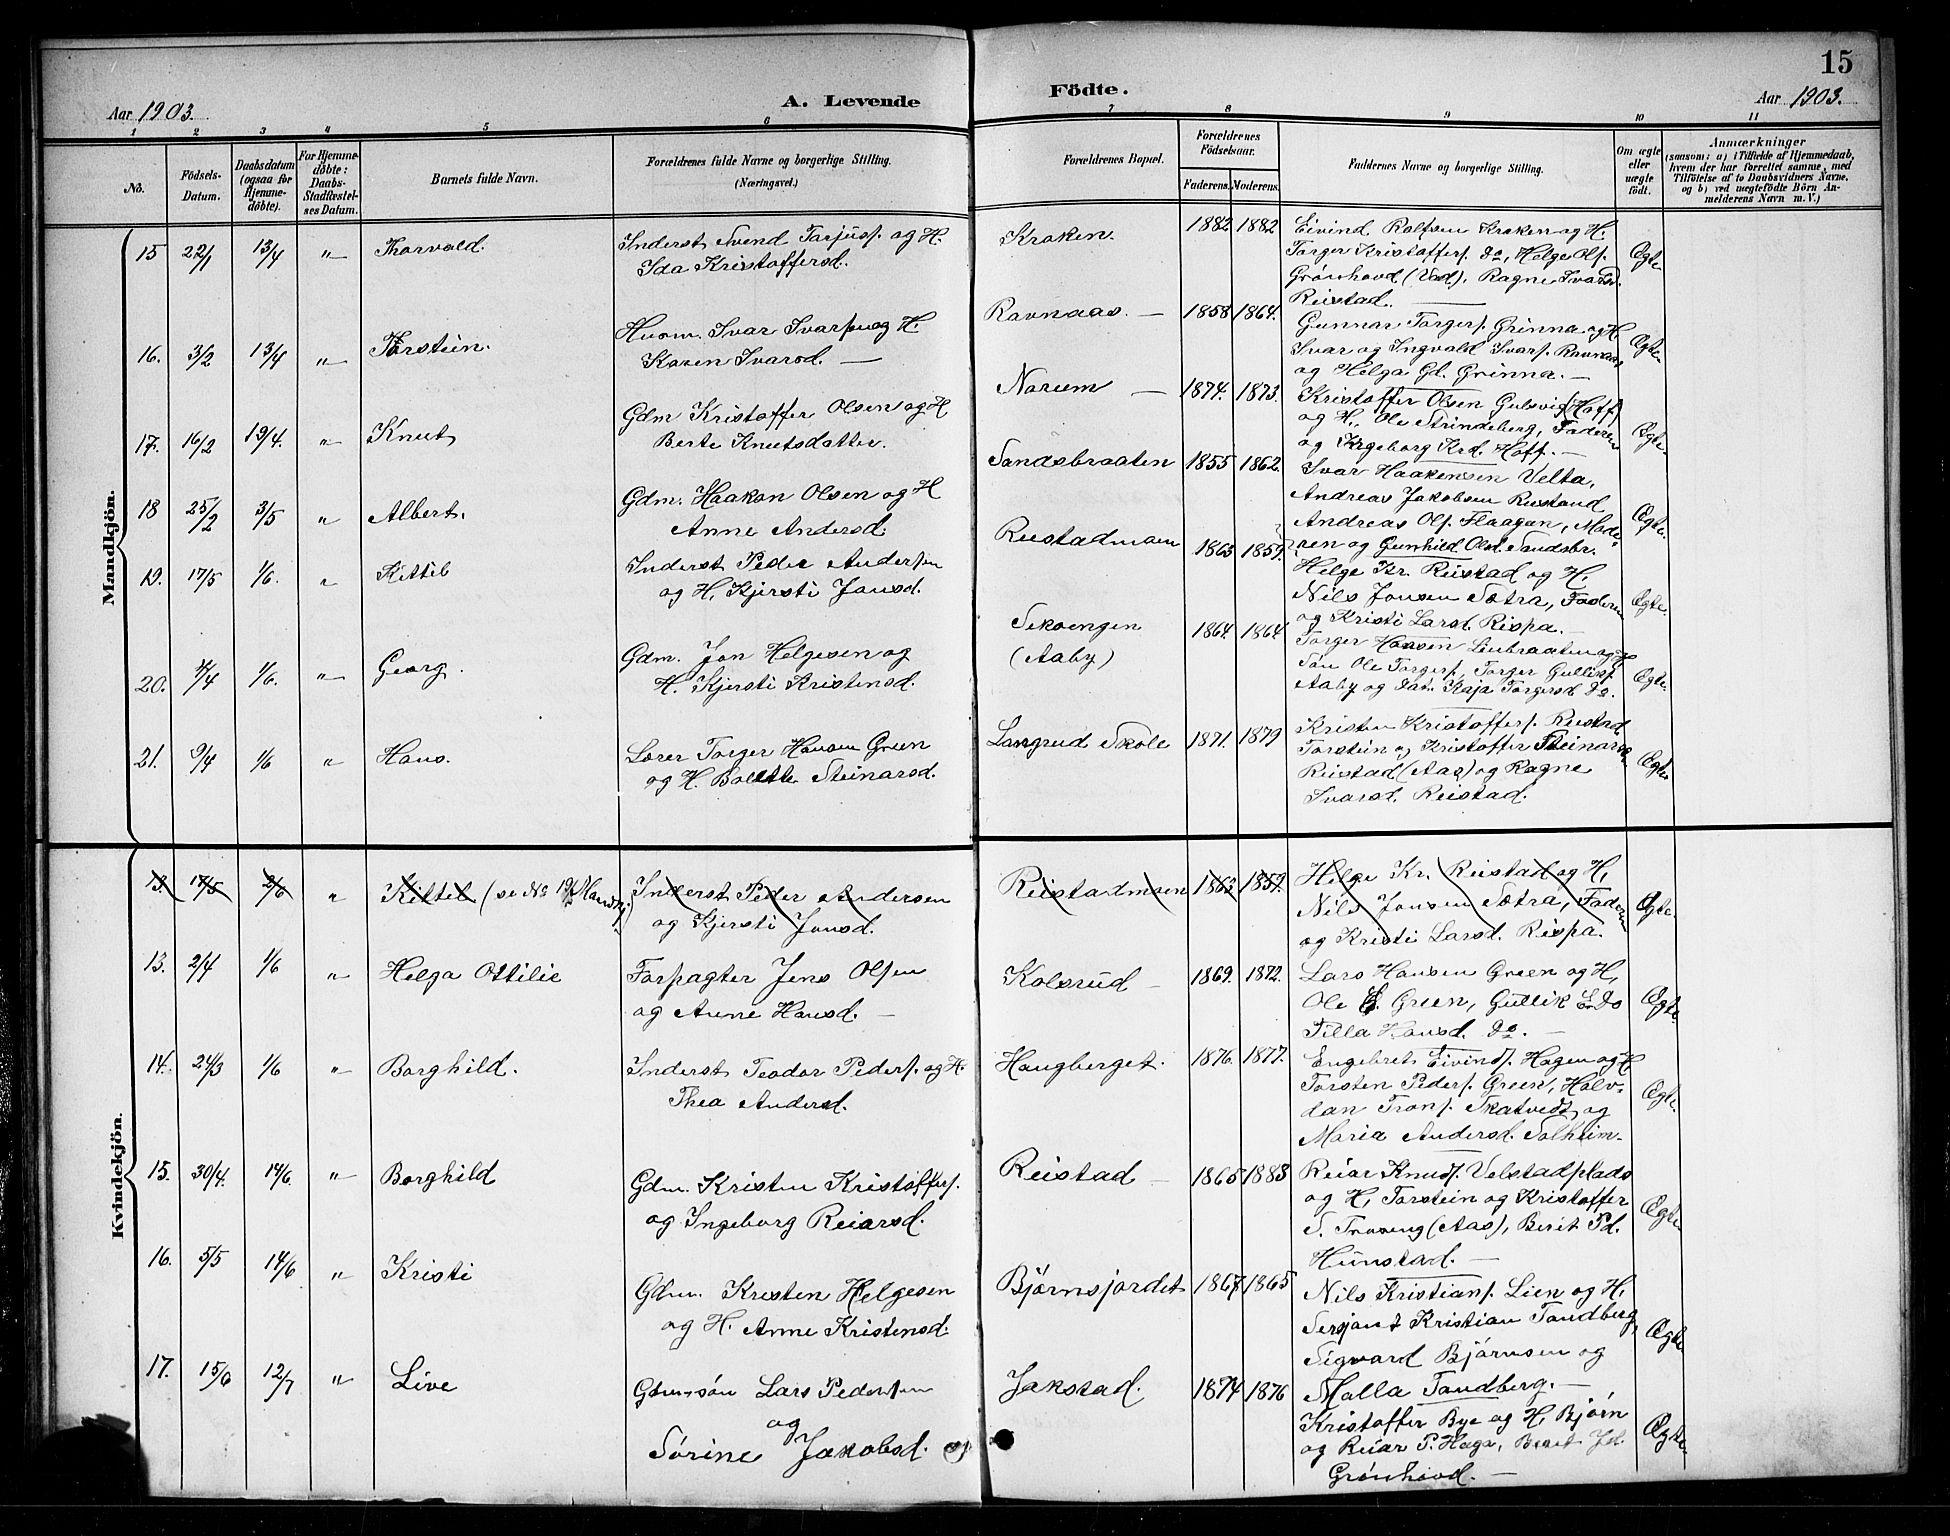 Aar 1903.
A. Levende
Födte.
15
Aar 1903.
1 2 3 4 5 6 7 8 9 10 11
No.
Födsels-
Datum.
Daabsdatum
(ogsaa for
Hjemme-
döbte).
For Hjemme-
döbte:
Daabs-
Stadfæstel-
ses Datum.
Barnets fulde Navn.
Forældrenes fulde Navne og borgerlige Stilling.
(Næringsvei.)
Forældrenes Bopæl.
Forældrenes
Födselsaar.
Faderens. Moderens.
Faddernes Navne og borgerlige Stilling.
Om ægte
eller
uægte
födt.
Anmærkninger
(saasom: a) i Tilfælde af Hjemmedaab,
hvem der har forrettet samme, med
Tilföielse af to Daabsvidners Navne,
og b) ved uægtefödte Börn An-
melderens Navn m. V.)
Mandkjön.
15 22/1 13/4 " Thorvald. Inderst Svend Tarjusf. og H.
Ida Kristoffersd.
Kroken. 1882 1882 Eivind Rolfsen Kroken og H.
Torger Kristoffersf. do, Helge Olf.
Grönhovd (Vad), Ragne Ivarsd.
Reistad. Ægte
16. 3/2 13/4 " Torstein. Husm. Ivar Ivarsen og H.
Karen Ivarsd. —
Ravnaas. — 1858 1864. Gunnar Torgersf. Grinna og H
Ivar og Ingvald Ivarsf. Ravnaas,
og Helga Gd. Grinna. — Ægte
17. 16/2 19/4. " Knut Gdm Kristoffer Olsen og H
Berte Knutsdatter.
Narum — 1874. 1873. Kristoffer Olsen Gulsvig (Hoff)
og H., Ole Strindeberg, Faderen
og Ingeborg Krd. Hoff. — Ægte
18 25/2 3/5 " Albert. Gdm. Haakon Olsen og H
Anne Andersd.
Sandsbraaten 1855 1862. Ivar Haakensen Velta,
Andreas Jakobsen Rustand
Andreas Olsf. Flaagan, Mode-
ren og Gunhild Olsd. Sandsbr. Ægte.
19. 17/5 1/6. " Kittil Inderst Peder Andersen
og H. Kjersti Jonsd.
Reistadmoen 1863 1859. Helge Kr. Reistad og H,
Nils Jonsen Sætra, Faderen
og Kristi Larsd. Rispa. — Ægte.
20. 4/4 1/6. " Georg. Gdm. Jon Helgesen og
H. Kjersti Kristensd.
Sekoengen
(Aaby) 1864. 1864 Torger Hansen Linbraaten og H
Søn Ole Torgersf., Torger Gulliksf.
Aaby og Dat. Kaja Torgersd do. Ægte.
21. 9/4 1/6 " Hans. Lærer Torger Hansen Green
og H. Bolette Steinarsd.
Langrud Skole 1871. 1879 Kristen Kristoffersf. Reistad
Torstein og Kristoffer Steinarsf.
Reistad (Aas) og Ragne
Ivarsd. Reistad. Ægte
Kvindekjön.
13. 17/5 2/6 " Kittel (se No 19 Mandkj.) Inderst Peder Andersen
og Kjersti Jonsd.
Reistadmoen 1863 1859. Helge Kr. Reistad og H,
Nils Jonsen Sætra, Faderen
og Kristi Larsd. Rispa. Ægte.
13. 2/4 1/6 " Helga Ottilie Forpagter Jens Olsen
og Anne Hansd. —
Kolsrud — 1869. 1872. Lars Hansen Green og H,
Ole L. Green, Gullik L. do
Tilla Hansd. do. — Ægte.
14. 24/3 1/6 " Borghild. Inderst Teodor Pedersf. og H.
Thea Andersd.
Haugberget. 1876. 1877. Engebret Eivindsf. Hagen og H
Torsten Pedersf. Green, Halv-
dan Tronsf. Skatvedt og
Maria Andersd. Solheim. Ægte.
15. 30/4. 14/6. " Borghild Gdm. Kristen Kristoffersf.
og Ingeborg Reiarsd.
Reistad — 1865 1883 Reiar Knudsf. Velstadplads
og H, Torstein og Kristoffer
S. (Aas), Berit Pd.
Hunstad. — Ægte
16. 5/5 14/6 " Kristi Gdm. Kresten Helgesen
og H. Anne Kristensd.
Bjørnsjordet 1867 1865 Nils Kristiansf. Lien og H,
Sersjant Kristian Tandberg,
Sigvard Bjørnsen og
Malla Tandberg. — Ægte
17. 15/6 12/7 " Live Gdm.søn Lars Pedersen
og
Sörine Jakobsd.
Jakstad. 1874 1876 Kristoffer Bye og H, Bjørn
og Reiar P. Haga, Berit Jd.
Grönhovd. — Ægte.